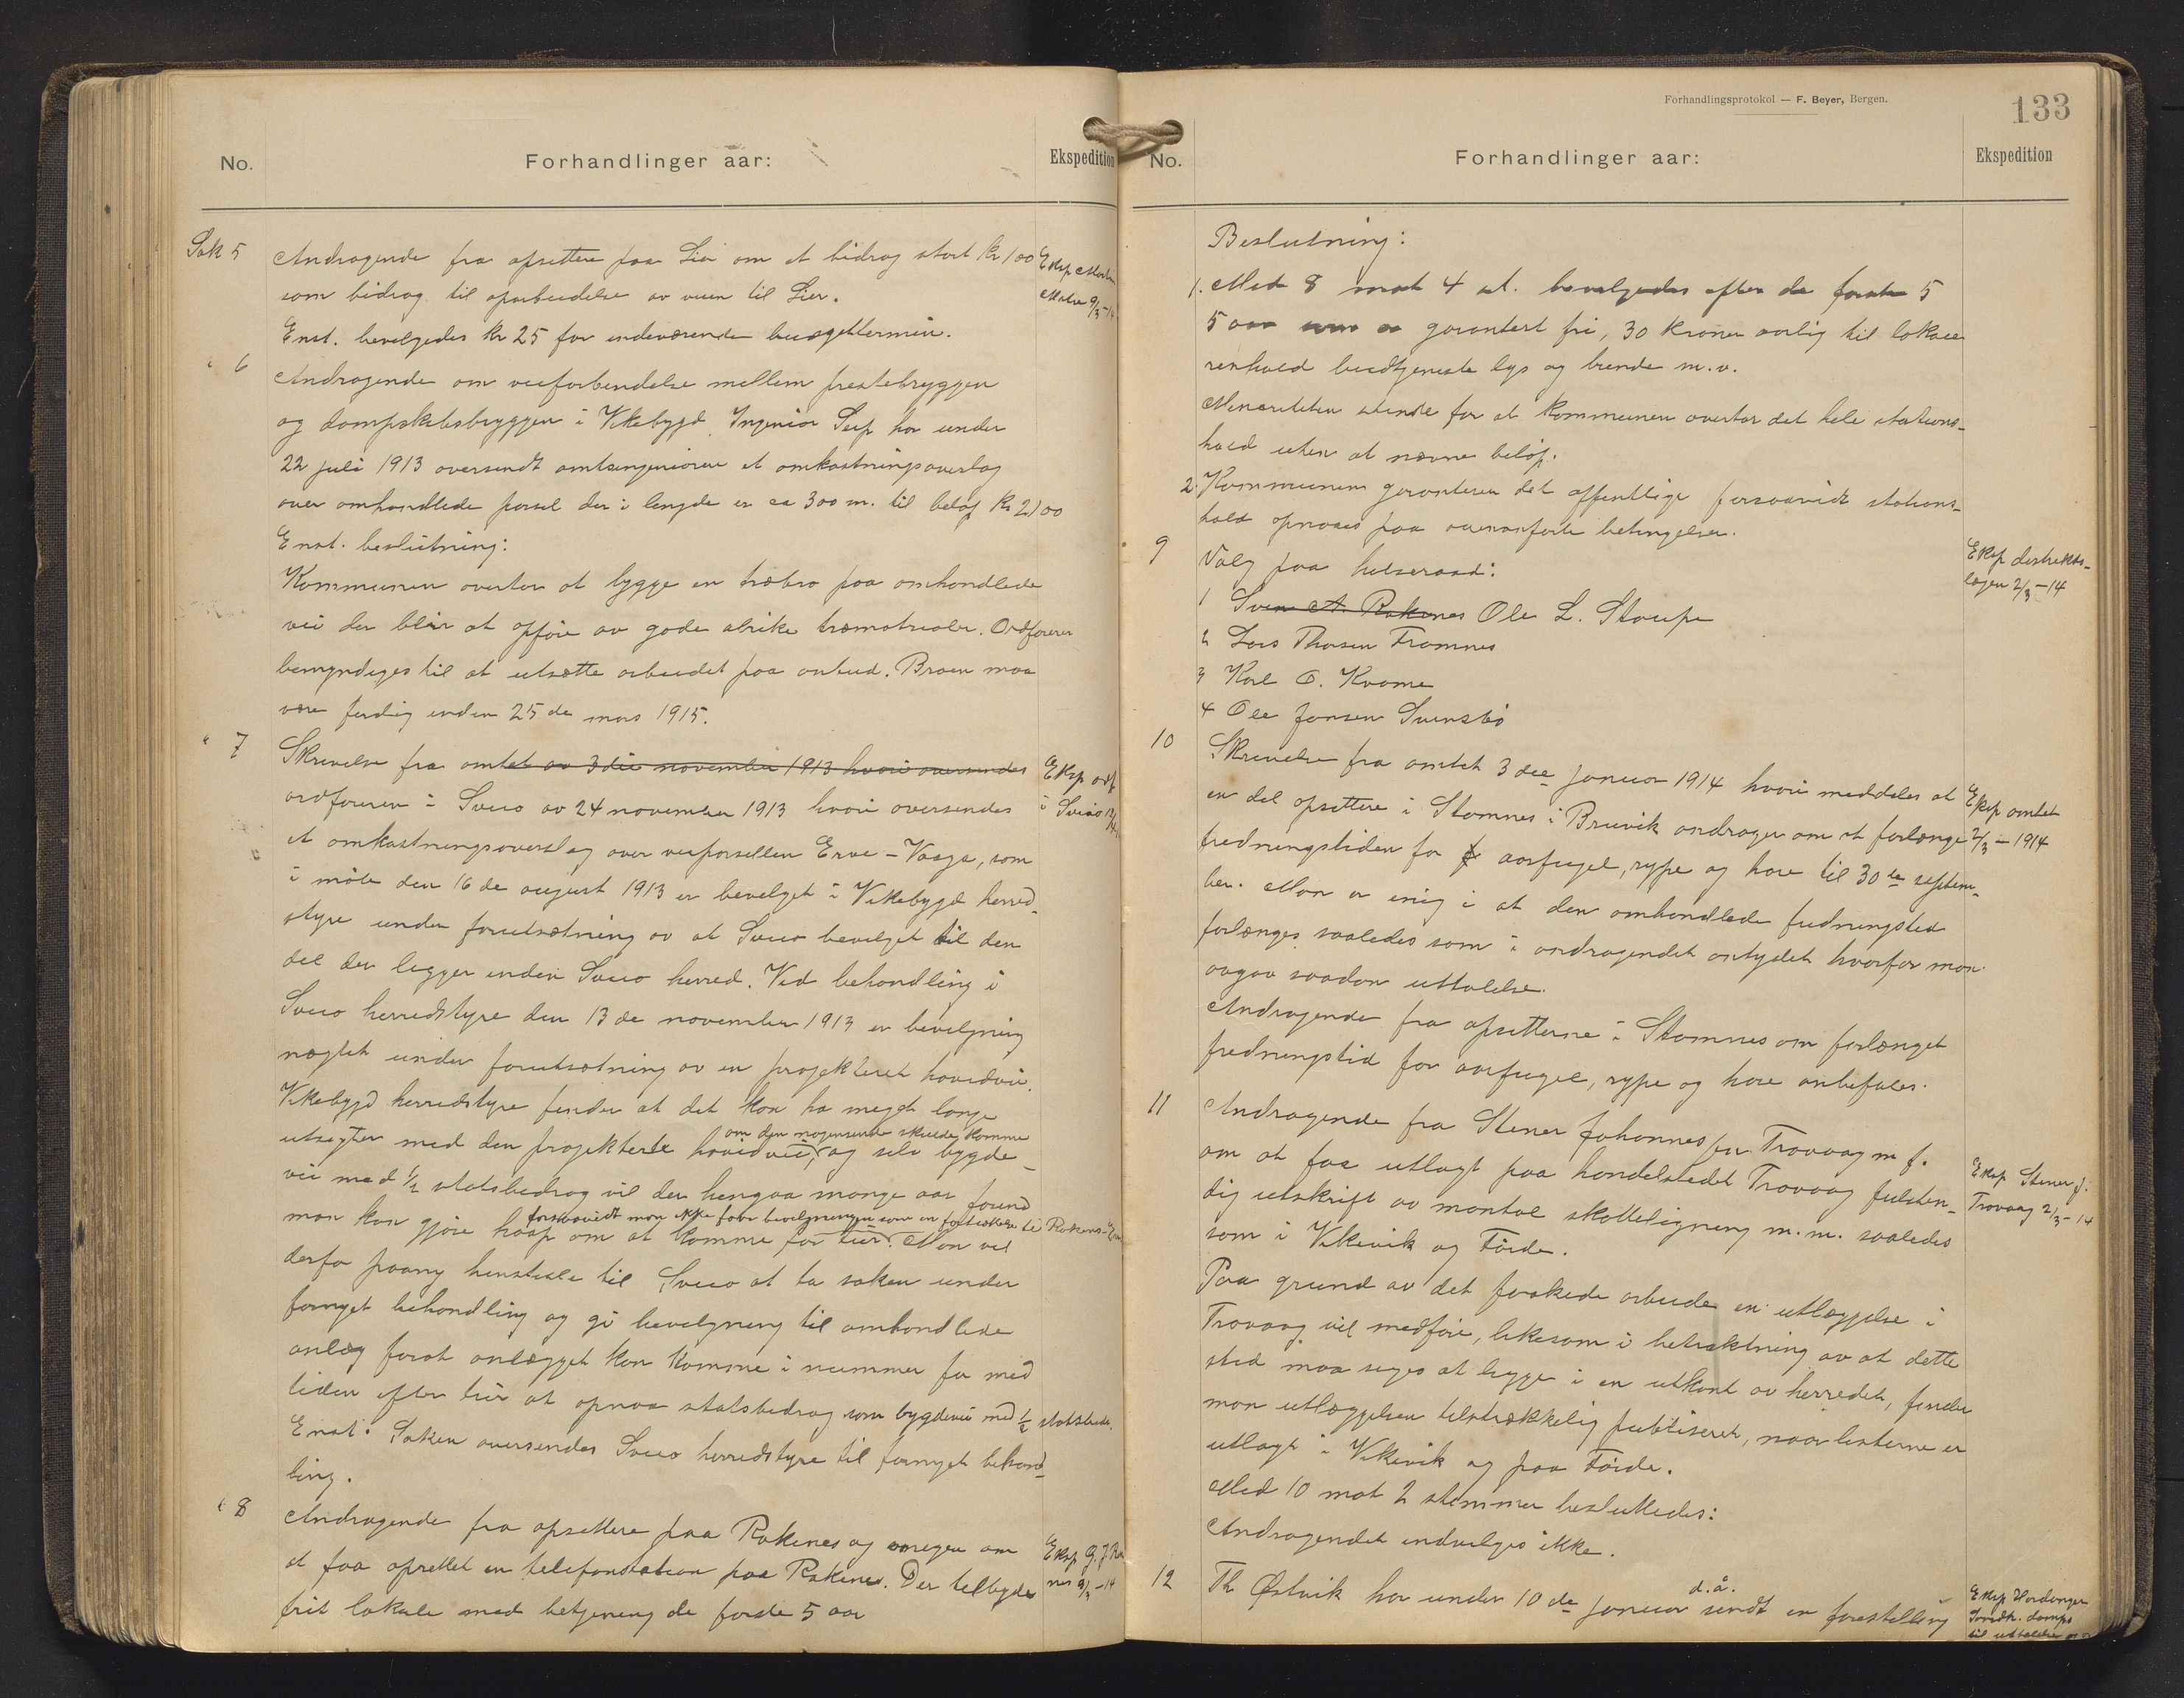 No.
Forhandlinger aar:
Ekspedition
Sak 5
Andragende fra opsittere paa Lier om et bidrag stort kr 100
som bidrag til oparbeidelse av veien til Lier.
Enst. bevelgedes kr 25 for indeværende budgettermin.
Eksp
" 6
Andragende om veiforbendelse mellem prestebryggen
og dampskibsbryggen i Vikebygd. Ingeniør Seip har under
22 juli 1913 oversendt amtsingeniøren et omkostningsoverlag
over omhandlede parsel der i lengde er ca 300 m. til beløp kr 2100
Enst. beslutning:
Kommunen overtar at bygge en træbro paa omhandlede
vei der blir at opføre av gode alrike træmatrialer. Ordføreren
bemyndiges til at utsætte arbeidet paa anbud. Broen maa
være ferdig inden 25 de mars 1915.
" 7
Skrivelse fra amtet av 3die november 1913 hvori oversendes
ordføreren i Sveio av 24 november 1913 hvori oversendes
et omkostningsoverslag over veiparsellen Erve - Vaage, som
i møte den 16 de august 1913 er bevelget i Vikebygd herred-
styre under forutsætning av at Sveio bevelget til den
del der legger inden Sveio herred. Ved behandling i
Sveio herredstyre den 13 de november 1913 er bevelgning
nægtet under forutsætning av en projekteret hovedvei.
Vikebygd herredstyre finder at det kan ha meget lange
om den nogensinde skulde komme
utsigter med den projekterte hovedvei, og selv bygde-
vei med 1/2 statsbedrag vil der hengaa mange aar forend
forsaavidt man ikke faar bevelgningen som en fortsættelse til Rakenes-
man kan gjøre haap om at komme for tur. Man vil
derfor paany henstille til Sveio at ta saken under
fornyet behandling og gi bevelgning til omhandlede
anlæg forat anlægget kan komme i nummer for med
tiden efter tur at opnaa statsbedrag som bygdevei med 1/2 statsbedr.
Enst: Saken oversendes Sveio herredstyre til fornyet behand-
ling.
Eksp ordf
i Sveio
" 8
Andragende fra opsittere paa Rakenes og omegen om
at faa oprettet en telefonstation paa Rakenes. Der tilbydes
frit lokale med betjening de første 5 aar
Eksp G. J. Rake
nes 2/3-14
Forhandlingsprotokol — F. Beyer, Bergen.
133
No.
Forhandlinger aar:
Ekspedition
Beslutning:
1. Med 8 mot 4 st. bevelgedes efter de første 5
5 aar som er garantert fri, 30 kroner aarlig til lokale
renhold budtjeneste lys og brende m.v.
Menoriteten stemte for at kommunen overtar det hele stations-
hold uten at nævne beløp.
2. Kommunen garanterer det offentlige forsaavidt stations-
hold opnaaes paa ovenanførte betingelser.
9
Valg paa helseraad:
1 Sven A. Rakenes Ole L. Staupe
2 Lars Thorsen Framnes
3 Karl O. Kvame
4 Ole Jansen Svensbø
Eksp destrekts-
lægen 2/3-14
10
Skrivelse fra amtet 3 die januar 1914 hvori meddeles at
en del opsittere i Stamnes i Bruvik andrager om at forlænge
fredningstiden for aarfugel, rype og hare til 30 te septem-
ber. Man er enig i at den omhandlede fredningstid
forlænges saaledes som i andragendet antydet hvorfor man
avgav saadan uttalelse.
Andragende fra opsitterne i Stamnes om forlænget
fredningstid for aarfugel, rype og hare anbefales.
Eksp amtet
2/3 - 1914
11
Andragende fra Stener Johannessen Trovaag m fl.
om at faa utlagt paa handelstedet Trovaag fulsten-
dig utskrift av mantal skatteligning m.m. saaledes
som i Vikevik og Førde.
Paa grund av det forøkede arbeide en utlæggelse i
Trovaag vil medføre, likesom i betraktning av at dette
sted maa siges at ligge i en utkant av herredet, finder
man utlæggelsen tilstrækkelig publiseret, naar listerne er
utlagt i Vikevik og paa Førde.
Med 10 mot 2 stemmer besluttedes:
Andragendet indvelges ikke.
Eksp Stener J.
Trovaag 2/3-14
12
Th Østvik har under 10 de januar d.å. sendt en forestelling
Eksp Hardanger
Søndh. damps
til uttalelse